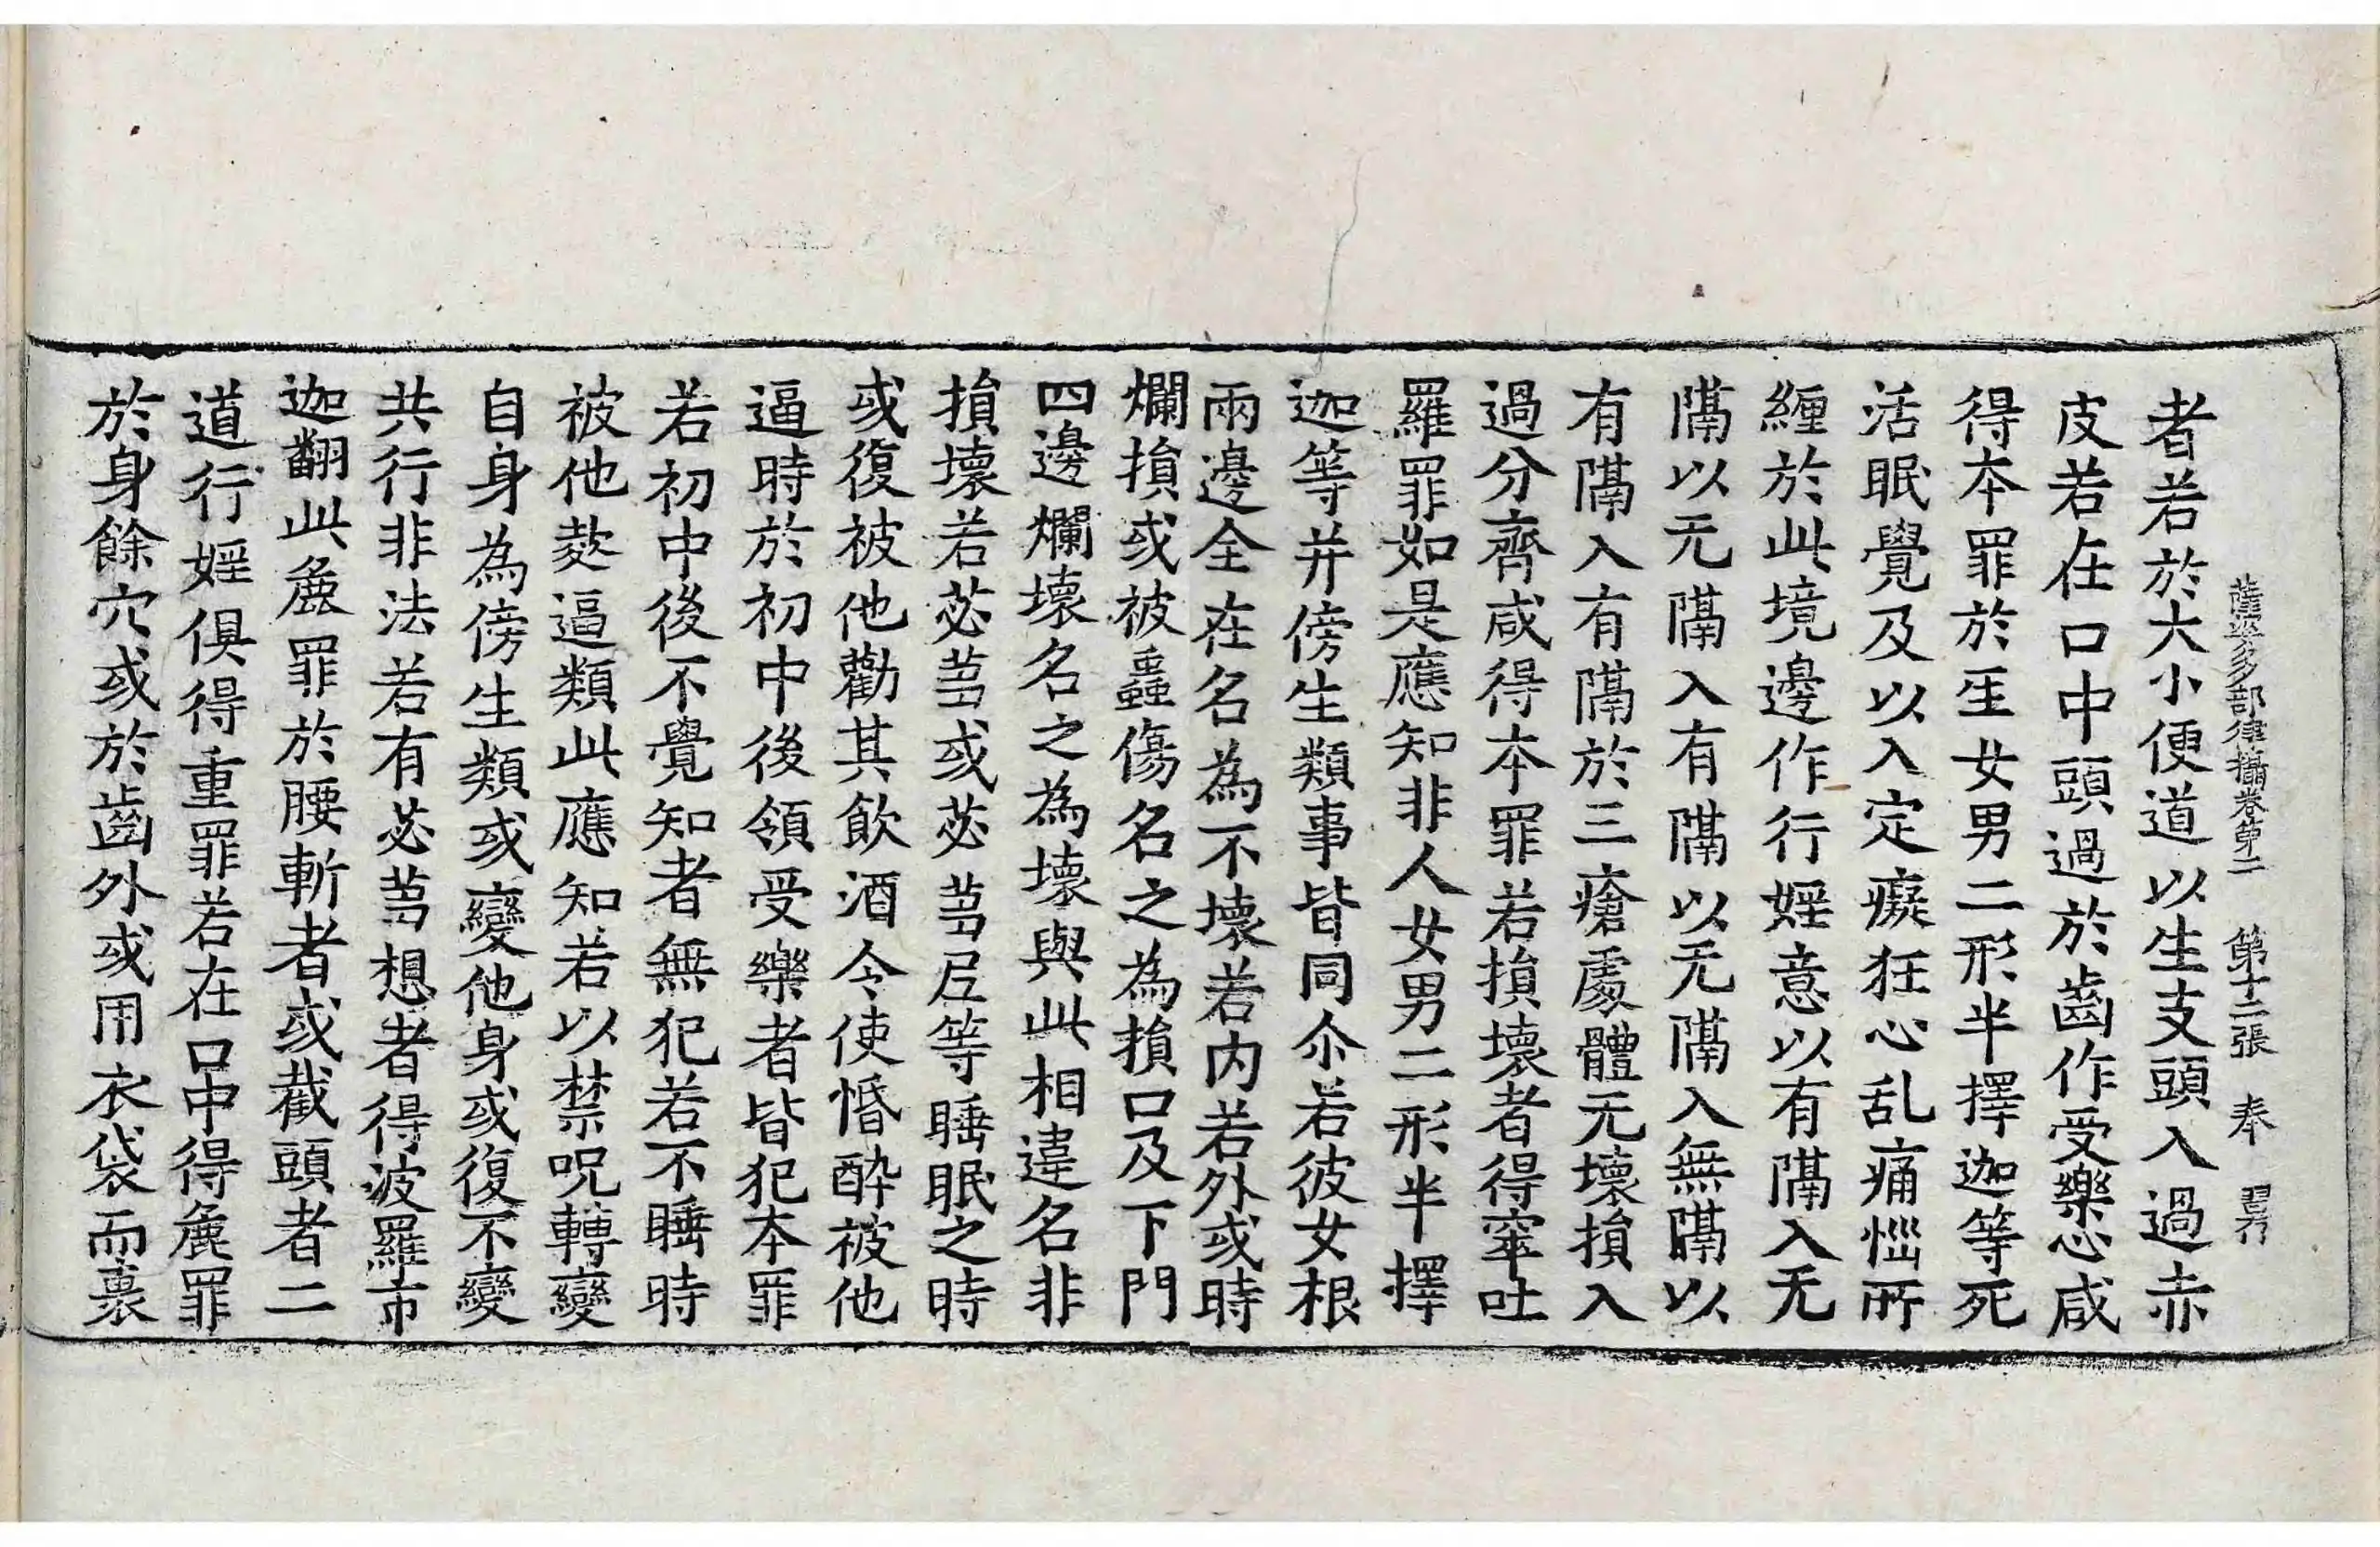 薩婆多部律攝卷第二 第十二張 奉
者若於大小便道以生支頭入過赤
皮若在口中頭過於齒作受樂心咸
得本罪於𤯔女男二形半擇迦等死
活眠覺及以入定癡狂心乱痛惱所
纏於此境邊作行婬意以有隔入无
隔以无隔入有隔以无隔入無隔以
有隔入有隔於三瘡處體无壞損入
過分齊咸得本罪若損壞者得窣吐
羅罪如是應知非人女男二形半擇
迦等并傍生類事皆同尒若彼女根
兩邊全在名為不壞若内若外或時
爛損或被蟲傷名之為損口及下門
四邊爛壞名之為壞與此相違名非
損壞若苾芻或苾芻尼等睡眠之時
或復被他勸其飲酒令使惛酔被他
逼時於初中後領受樂者皆犯本罪
若初中後不覺知者無犯若不睡時
被他欺逼類此應知若以禁呪轉變
自身為傍生類或變他身或復不變
共行非法若有苾芻想者得波羅市
迦翻此麁罪於腰斬者或截頭者二
道行婬俱得重罪若在口中得麁罪
於身餘穴或於齒外或用衣袋而裹